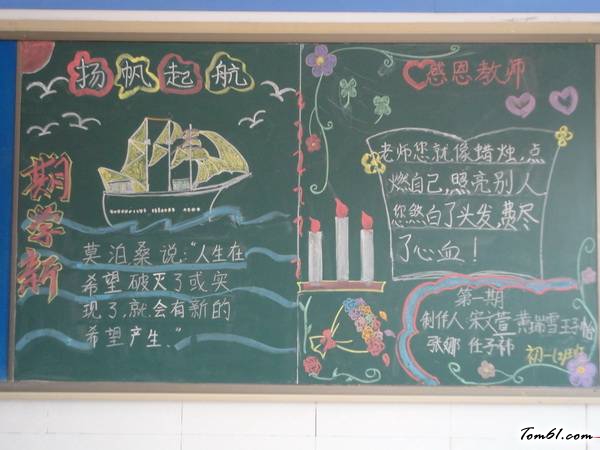 扬帆起航
新学期
莫泊桑说:“人生在
希望破灭了或实
现了,就会有新的
希望产生.”
感恩教师
老师您就像蜡烛,点
燃自己,照亮别人
您熬白了头发,费尽
了心血!
第一期
制作人 宋文萱 黄瑞雪 王子怡
张娜 任子祎
初一
Tom61.com